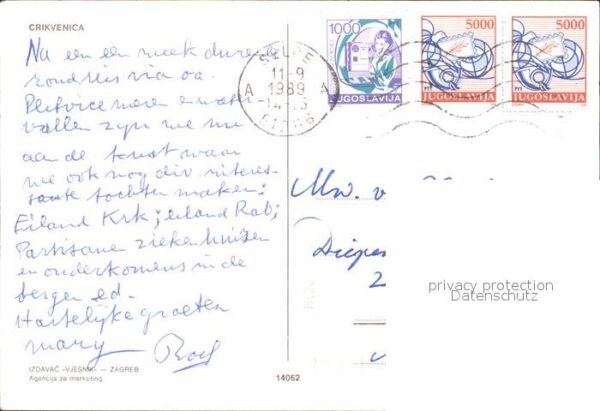 CRIKVENICA
Na een een week durende
rondreis via oa.
Plitvice meren en water-
vallen zijn we nu
aan de kust waar
we ook nog div. interes-
sante tochten maken:
Eiland Krk; eiland Rab;
Partisanen ziekenhuizen
en onderkomens in de
bergen ed.
Hartelijke groeten
mary
IZDAVAČ »VJESNIK« — ZAGREB
Agencija za marketing
14062
1000
JUGOSLAVIJA
5000
PTT
JUGOSLAVIJA
5000
PTT
JUGOSLAVIJA
SELCE
11-9
A 1989 A
Mw. v
privacy protection
Datenschutz